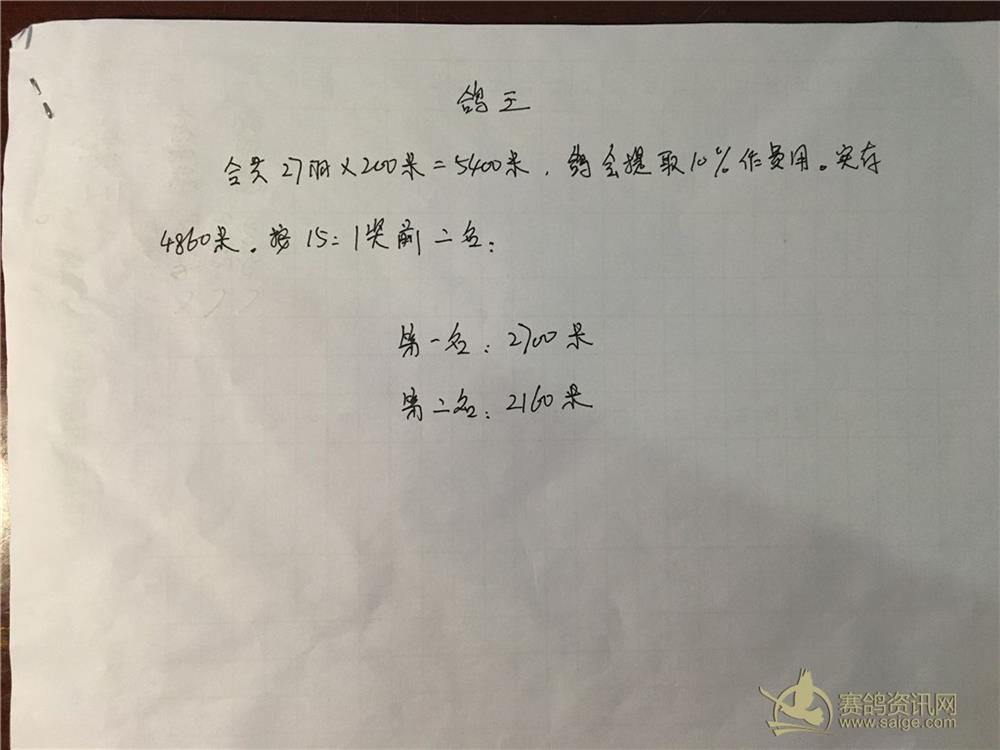 鸽王
合共27羽×200米=5400米，鸽会提取10%作费用。实存
4860米。按15:1奖前二名：
第一名：2700米
第二名：2160米
赛鸽资讯网
www.saige.com